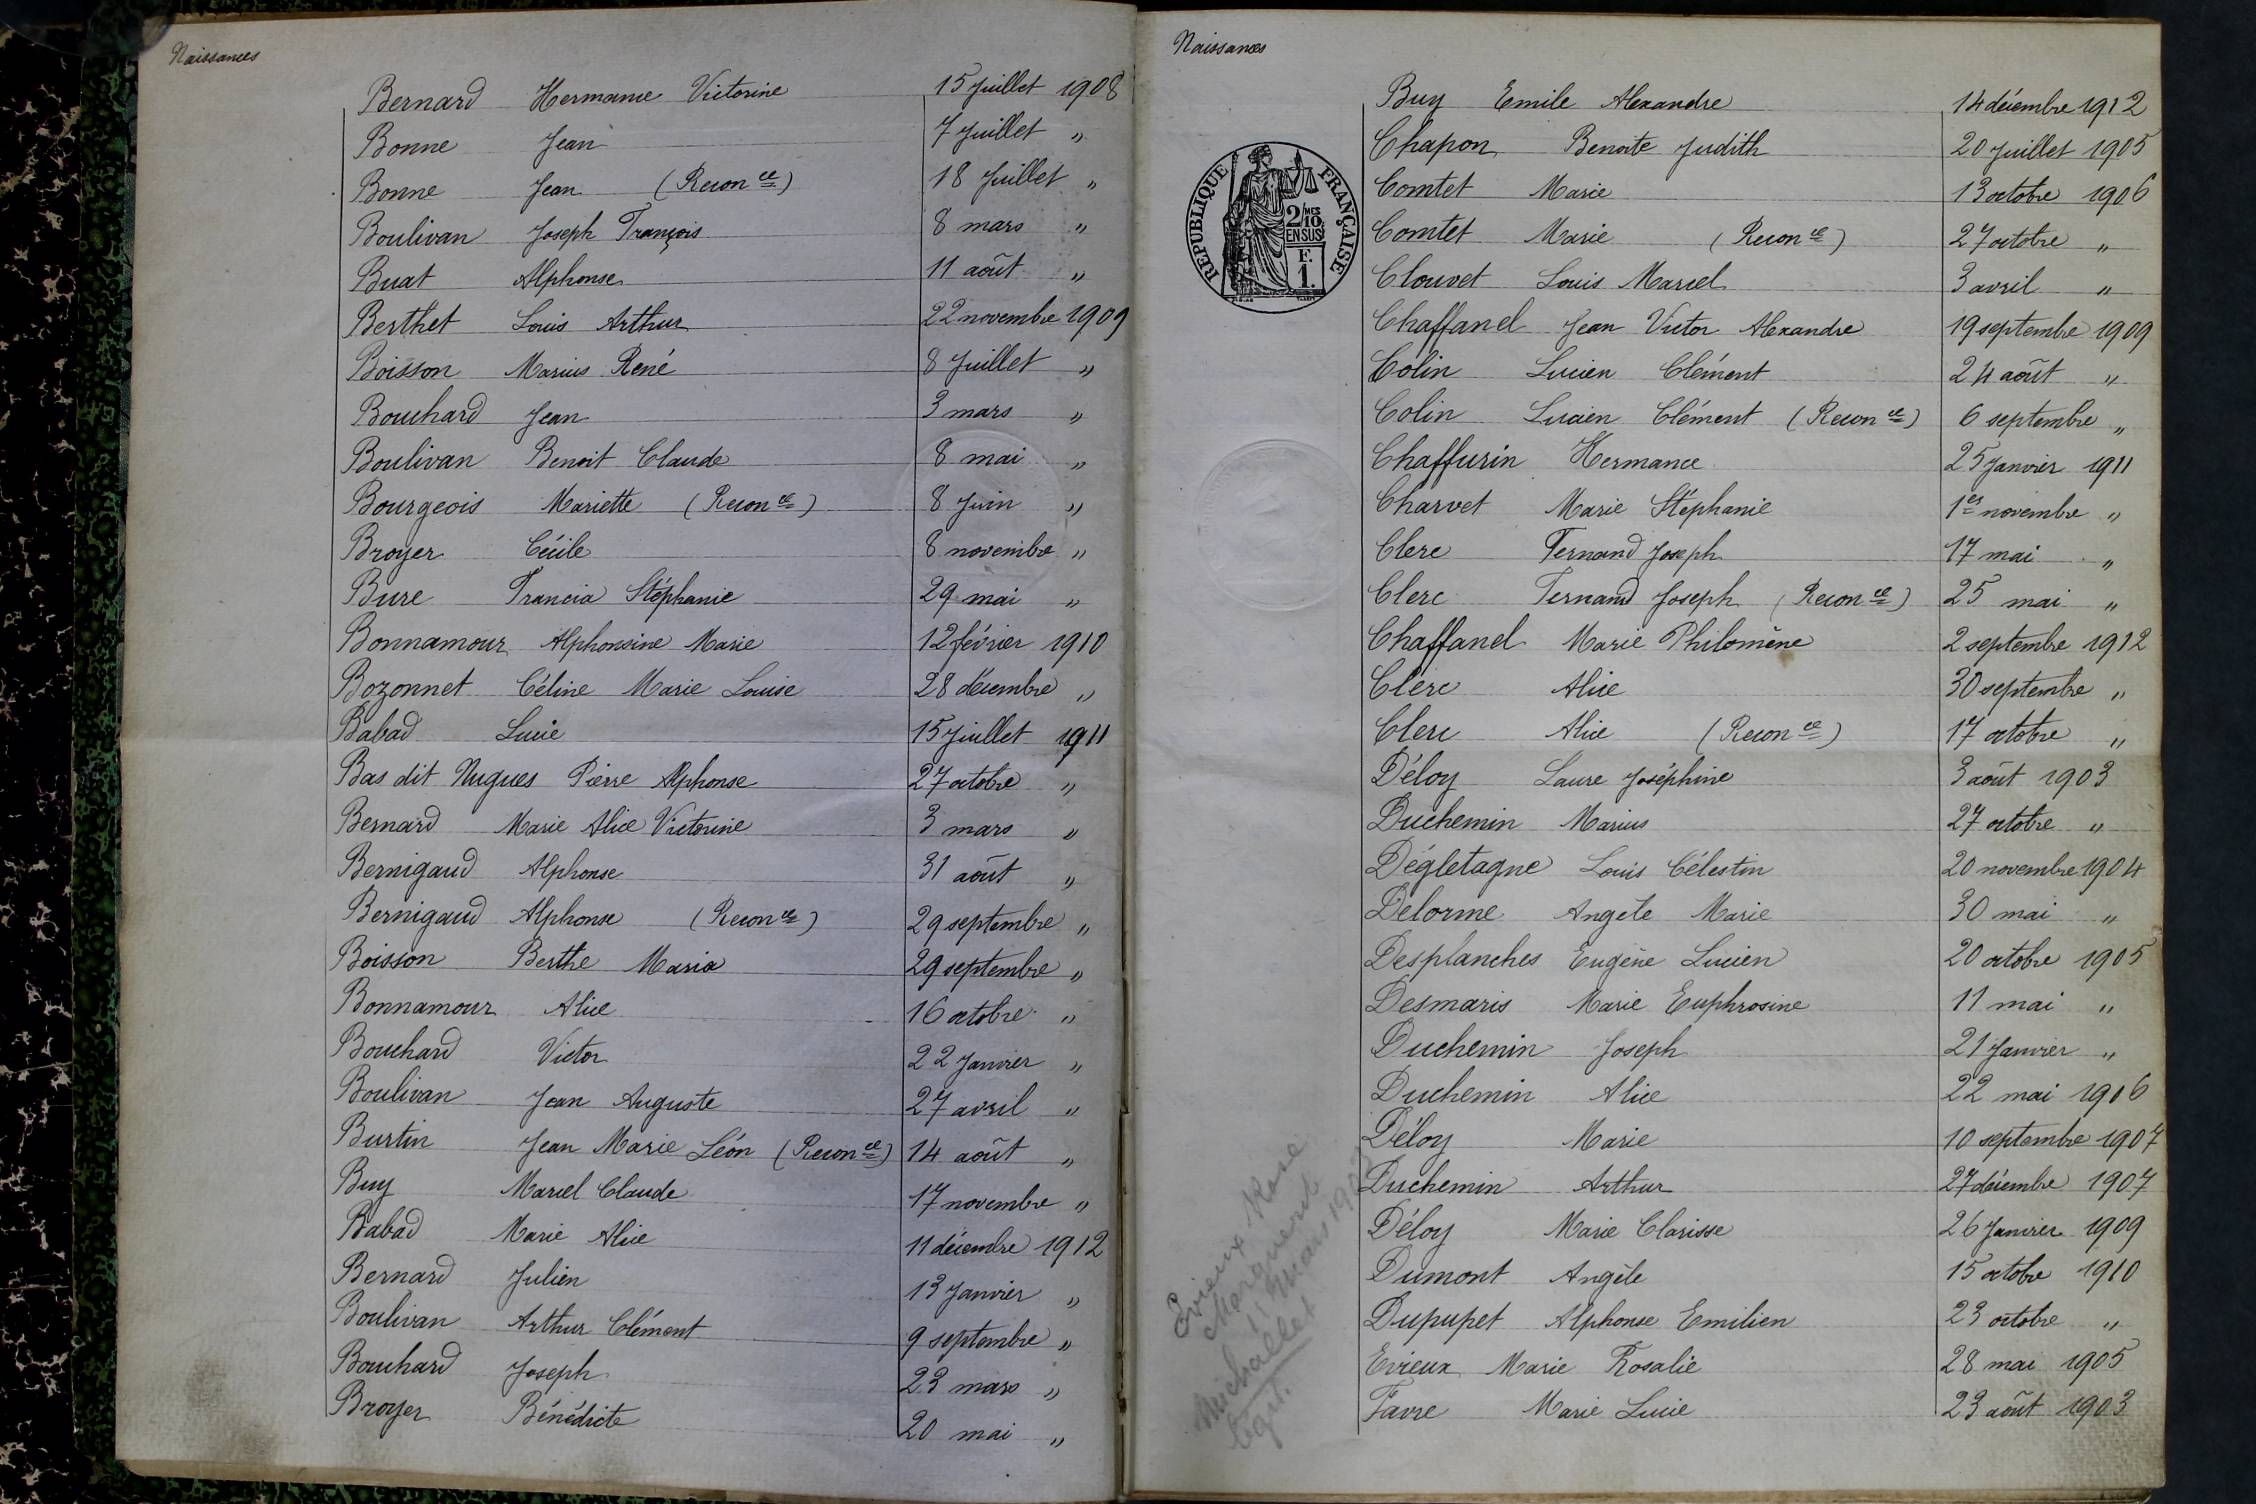 Naissances
Bernard Hermance Victorine 15 Juillet 1908
Bonne Jean 7 Juillet "
Bonne Jean (Recon ce) 18 Juillet "
Boulivan Joseph François 8 mars "
Buat Alphonse 11 août "
Berthet Louis Arthur 22 novembre 1909
Boisson Marius René 8 Juillet "
Bouchard Jean 3 mars "
Boulivan Benoit Claude 8 mai "
Bourgeois Mariette (Recon ce) 8 Juin "
Broyer Cécile 8 novembre "
Bure Francia Stéphanie 29 mai "
Bonnamour Alphonsine Marie 12 février 1910
Bozonnet Céline Marie Louise 28 décembre "
Babad Lucie 15 Juillet 1911
Bas dit Nugues Pierre Alphonse 27 octobre "
Bernard Marie Alice Victorine 3 mars "
Bernigaud Alphonse 31 août "
Bernigaud Alphonse (Recon ce) 29 septembre "
Boisson Berthe Maria 29 septembre "
Bonnamour Alice 16 octobre "
Bouchard Victor 22 Janvier "
Boulivan Jean Auguste 27 avril "
Burtin Jean Marie Léon (Recon ce) 14 août "
Buy Marcel Claude 17 novembre "
Babad Marie Alice 11 décembre 1912
Bernard Julien 13 Janvier "
Boulivan Arthur Clément 9 septembre "
Bouchard Joseph 23 mars "
Broyer Bénédicte 20 mai "
Naissances
Buy Emile Alexandre 14 décembre 1912
Chapon Benoite Judith 20 Juillet 1905
Comtet Marie 13 octobre 1906
Comtet Marie (Recon ce) 27 octobre "
Clouvet Louis Marcel 3 avril "
Chaffanel Jean Victor Alexandre 19 septembre 1909
Colin Lucien Clément 24 août "
Colin Lucien Clément (Recon ce) 6 septembre "
Chaffurin Hermance 25 Janvier 1911
Charvet Marie Stéphanie 1er novembre "
Clerc Fernand Joseph 17 mai "
Clerc Fernand Joseph (Recon ce) 25 mai "
Chaffanel Marie Philomène 2 septembre 1912
Clerc Alice 30 septembre "
Clerc Alice (Recon ce) 17 octobre "
Déloy Laure Joséphine 3 août 1903
Duchemin Marius 27 octobre "
Dégletagne Louis Célestin 20 novembre 1904
Delorme Angèle Marie 30 mai "
Desplanches Eugène Lucien 20 octobre 1905
Desmaris Marie Euphrosine 11 mai "
Duchemin Joseph 21 Janvier "
Duchemin Alice 22 mai 1906
Déloy Marie 10 septembre 1907
Duchemin Arthur 27 décembre 1907
Déloy Marie Clarisse 26 Janvier 1909
Dumont Angèle 15 octobre 1910
Dupupet Alphonse Emilien 23 octobre "
Evieux Marie Rosalie 28 mai 1905
Favre Marie Lucie 23 août 1903
RÉPUBLIQUE FRANÇAISE
2/MES
10
EN SUS
F.
1.
Evieux Rose
Marguerite
mars